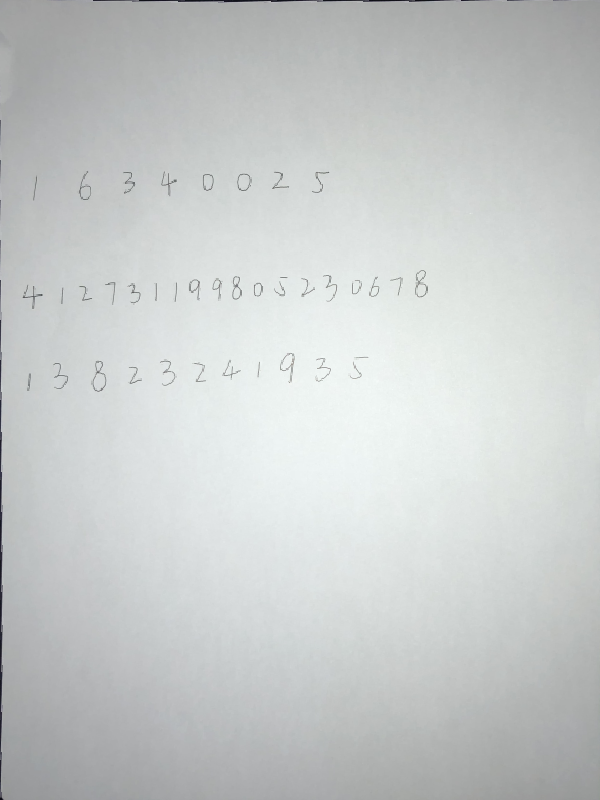 1 6 3 4 0 0 2 5
4 1 2 7 3 1 1 9 9 8 0 5 2 3 0 6 7 8
1 3 8 2 3 2 4 1 9 3 5